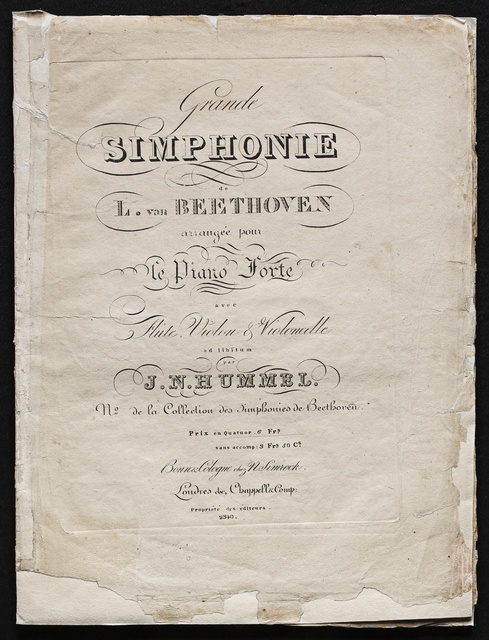 Grande
SIMPHONIE
de
L. van BEETHOVEN
arrangée pour
le Piano Forte
avec
Flûte, Violon & Violoncelle
ad libitum
par
J.N. HUMMEL.
Nº de la Collection des Simphonies de Beethoven.
Prix en Quatuor: 6 Frs
sans accomp: 3 Frs 50 Cs
Bonn & Cologne chez N. Simrock.
Londres chez Chappell & Comp:
Propriété des éditeurs.
2340.